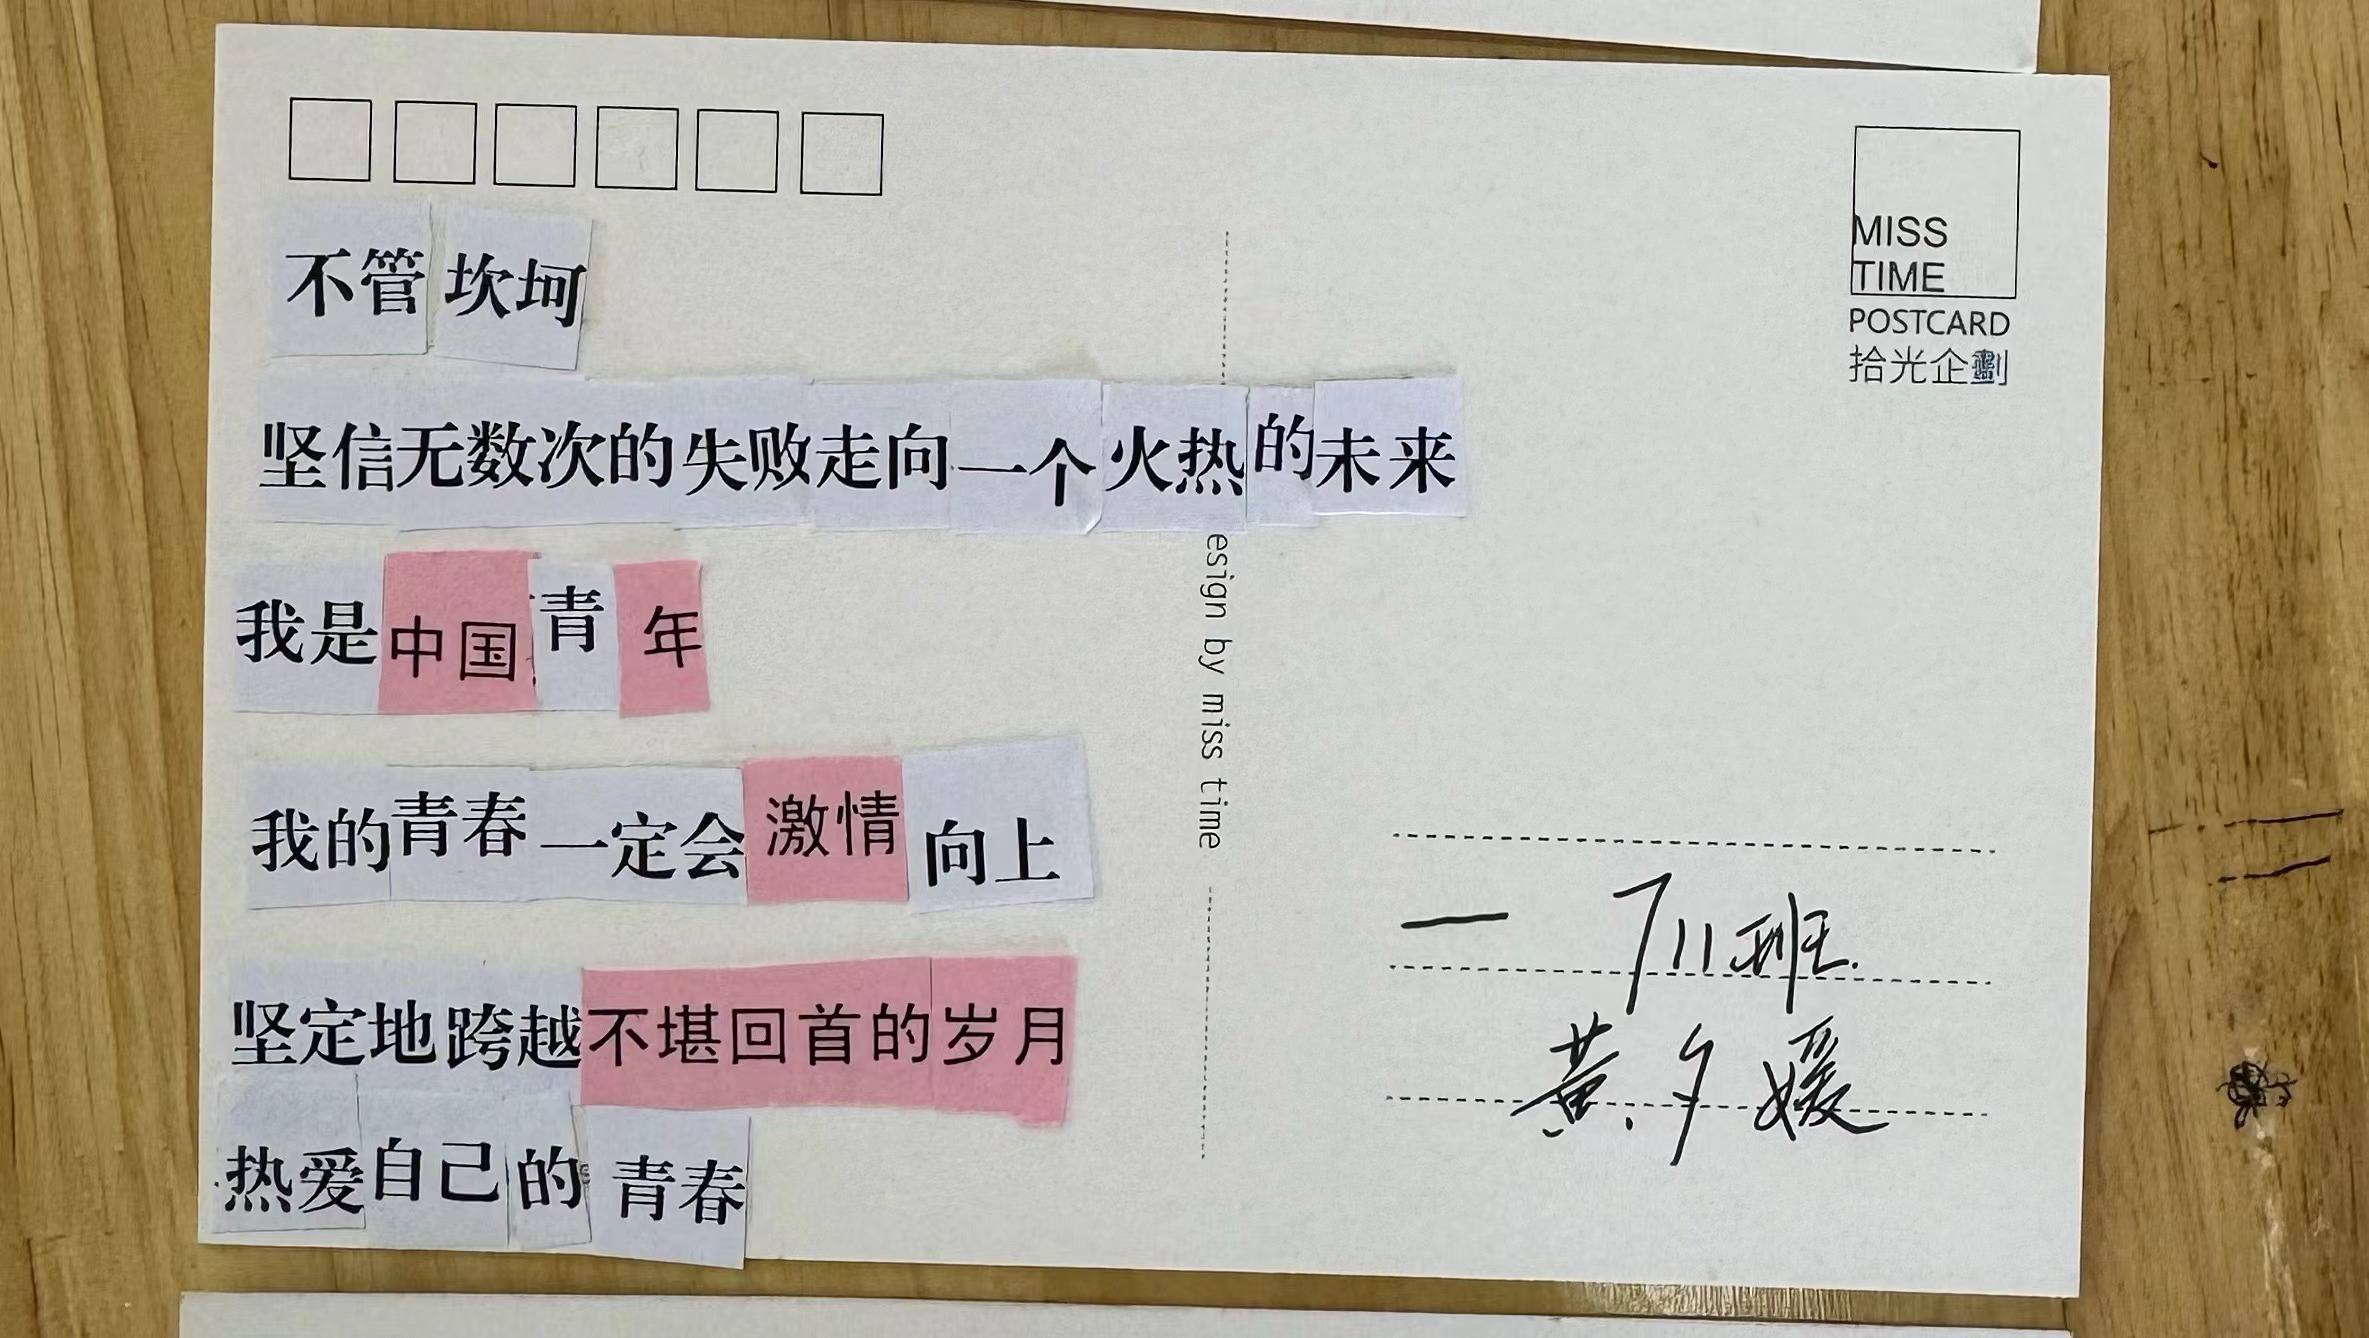 不管坎坷
坚信无数次的失败走向一个火热的未来
我是中国青年
我的青春一定会激情向上
坚定地跨越不堪回首的岁月
热爱自己的青春
esign by miss time
MISS
TIME
POSTCARD
拾光企劃
一 711班.
黄夕媛